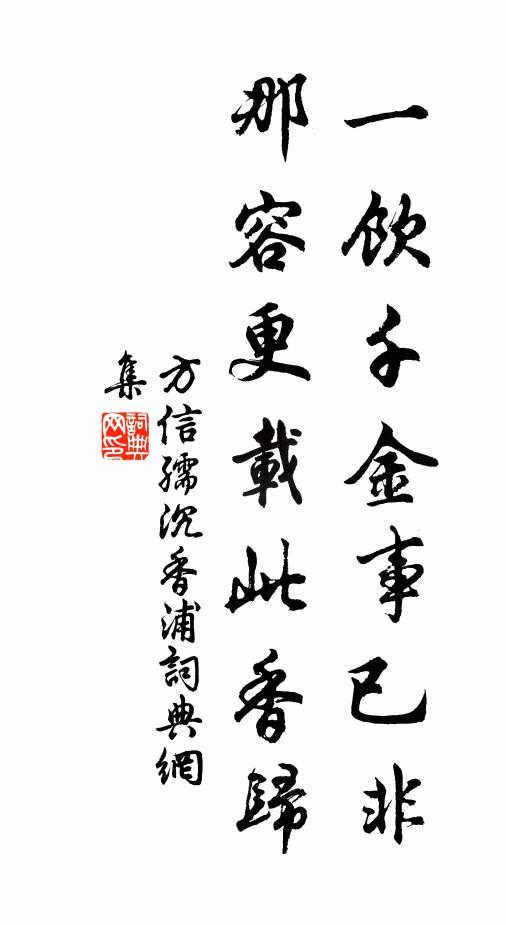 一飲千金事已非
那容更載此香歸
方信孺沉香浦詞典網
集
詞典网印